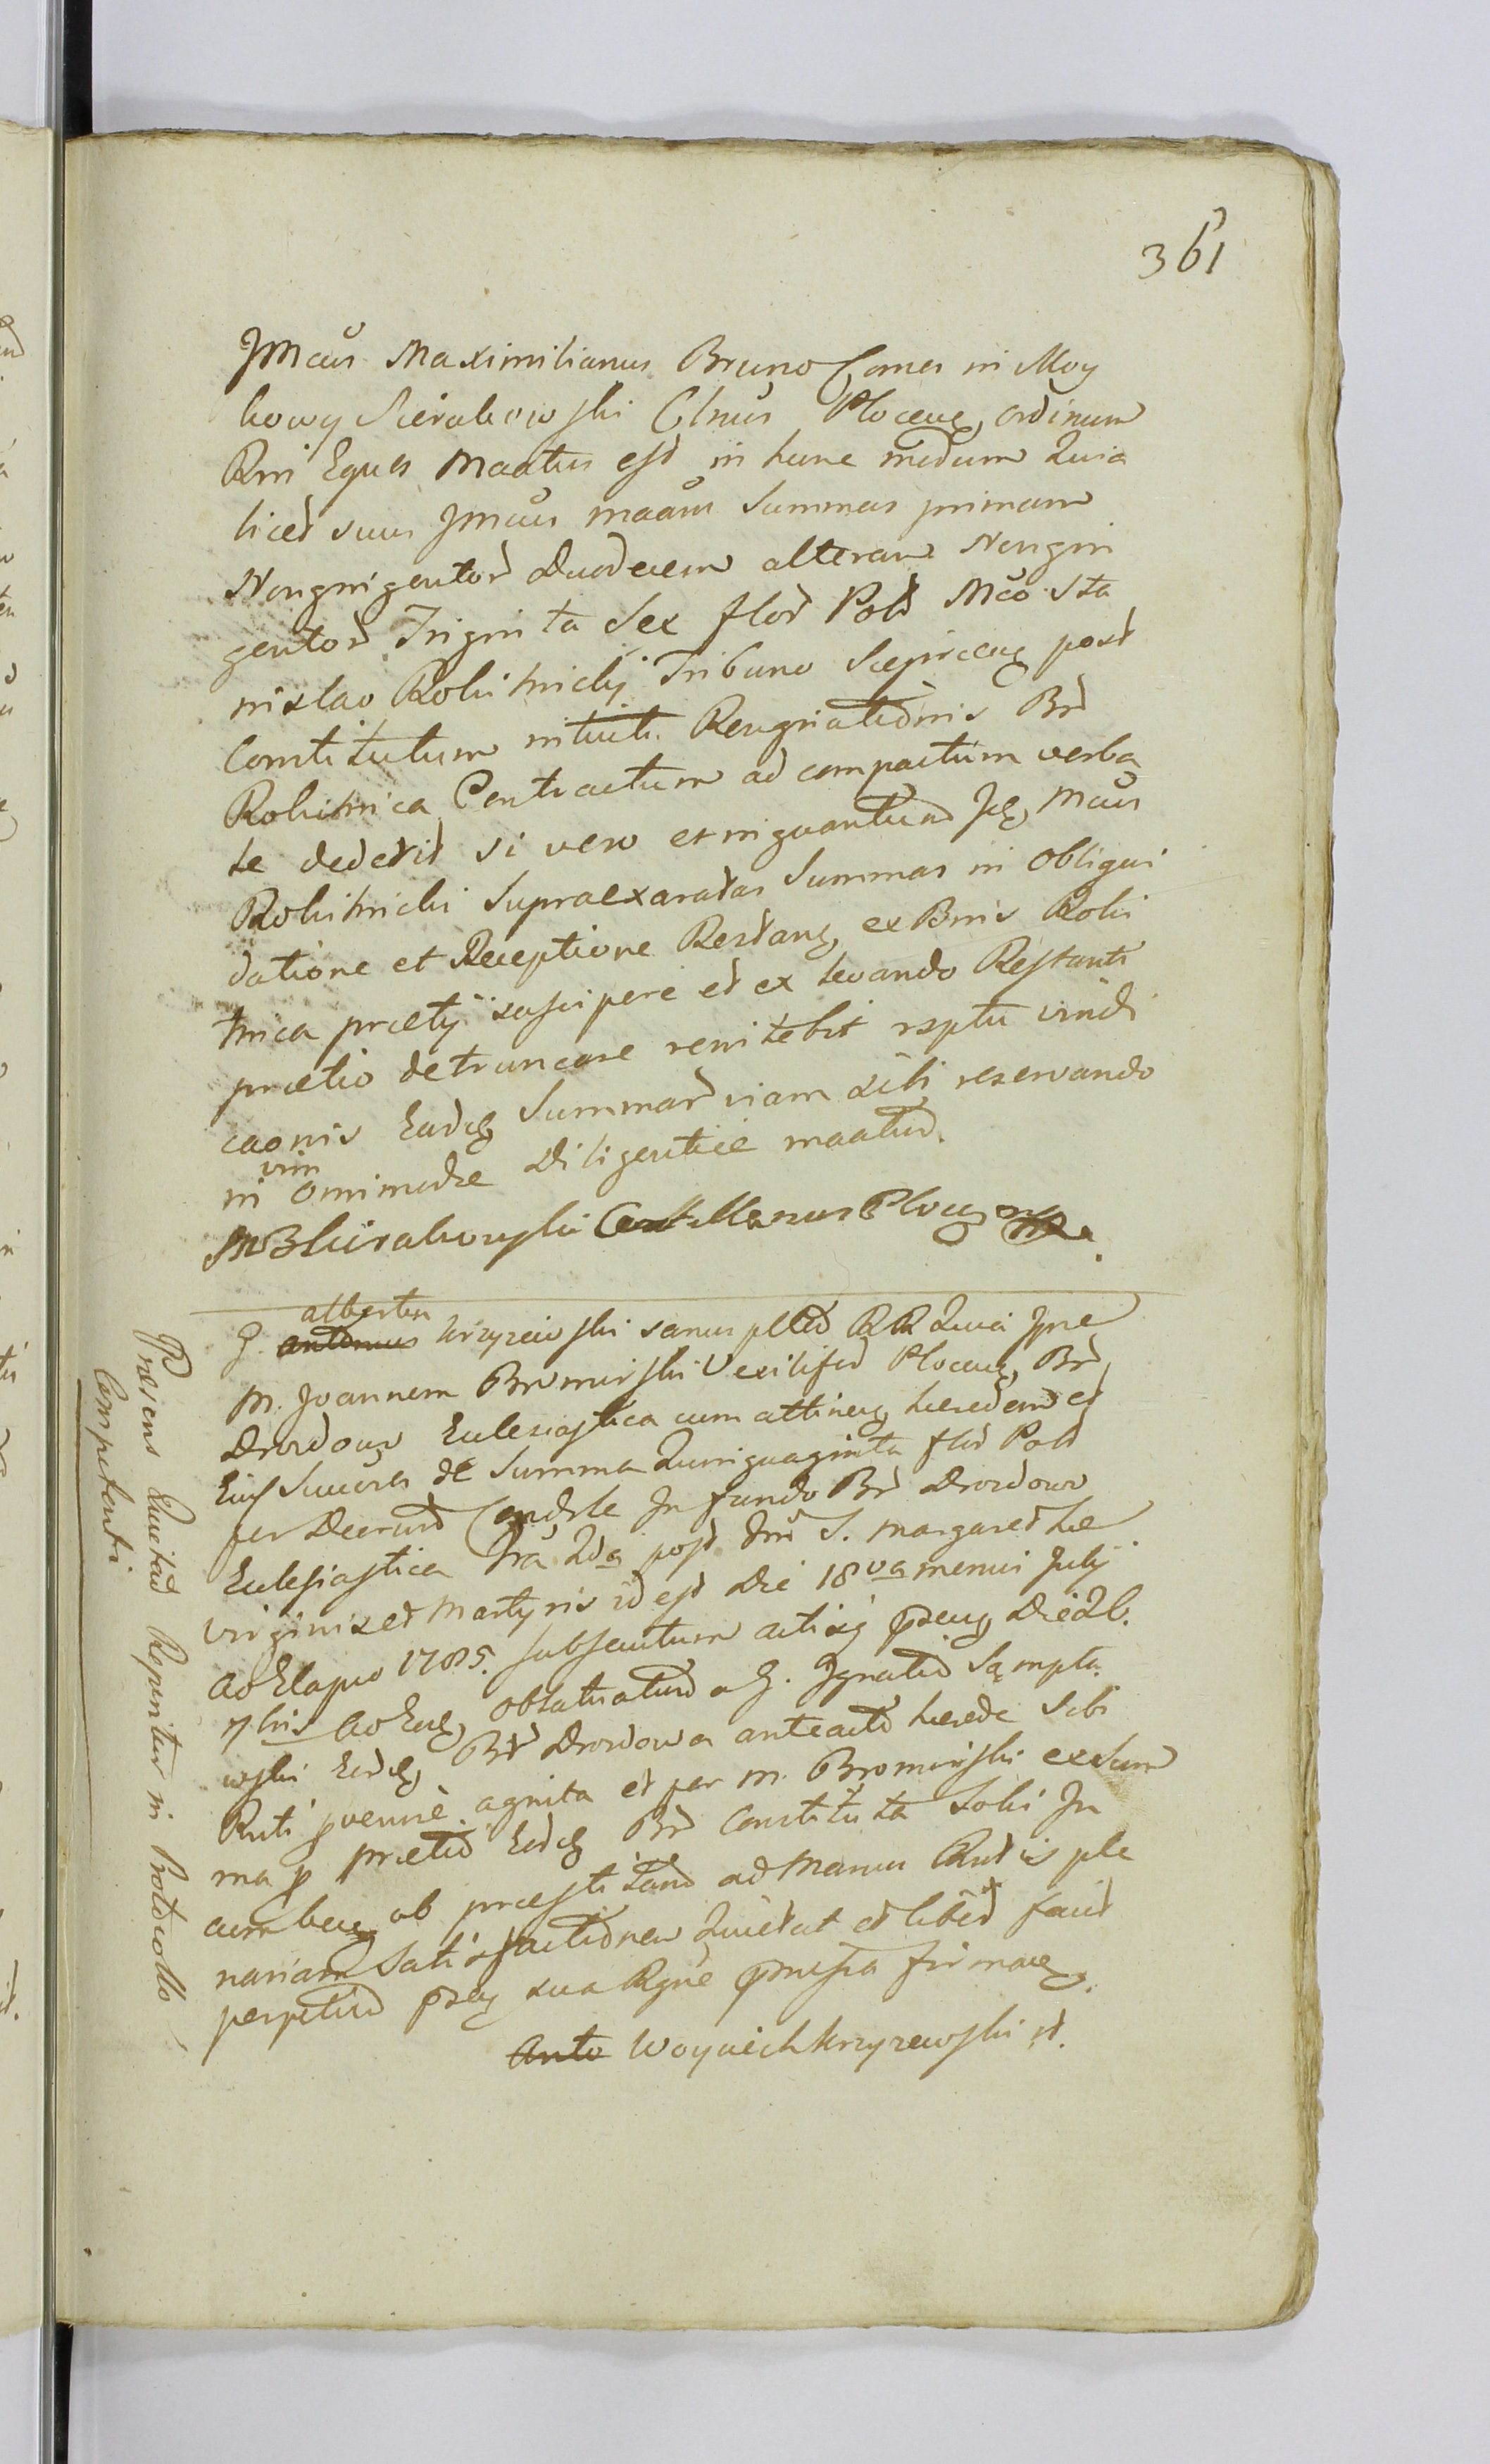 361
JMcus Maximilianus Bruno Comes in Moy
kowy Sierakowski Clnus Plocens, ordinum
Rni Eques Maatus est in hunc modum Quia
licet suus JMcus maans Summas primam
Nongnigentor Duodecem alteram Nongin
gentor Triginta Sex flor Pold Mco Sta
nislao Rokitnicky Tribuno Sieprcens post
Constitutum intuit. Resgnationis Br
Rokitnica Contractum ad compactum verba
le dederit si vero et inquantum Jdq Mcus
Rokitnicki Supraexaratas Summas in obliqui
datione et Receptione Restanq ex Bnis Roki
tnica pretij suscipere et ex levando Restanti
pretio detruncare renitebit rsptu vindi
caonis Eardq Summar viam sibi reservando
in vim omnimodae Diligentiae maatur.
MBSierakowski Castellanus Plocq
G. antonius albertus krzyzewski sanus pltd RR Quia Jpse
M. Joannem Bromirski Vexilifer Plocens, Br
Drozdowo Eclesiastica cum attinenq heredem et
Eius Succres de Summa Quinquaginta flor Pold
per Decrum Condsle In fundo Br Drozdowo
Eclesiastica fra 2da post fm S. Margarethae
virginis et Martyris id est Die 18va mensis Julij
ao Elapso 1785. subsecutum actisq psens Die 26.
7bris ao Eodq oblatratum a G. Ignatio Sąmpła
wski Eardq Br Drozdowa anteacto herede Sibi
Rnti pvenire agnita et per M. Bromirski ex Sum
ma p pretio Eardq Br Constituta Solvi In
cumbens, ob praestitam ad Manus Rntis ple
nariam Satisfactionem Quietat et liber facit
perpetuo psenq sua Rgne pmissa firmans.
Anto Woyciech krzyzewski st.
Praesens Quietao Reperitur in Protocollo
Competenti